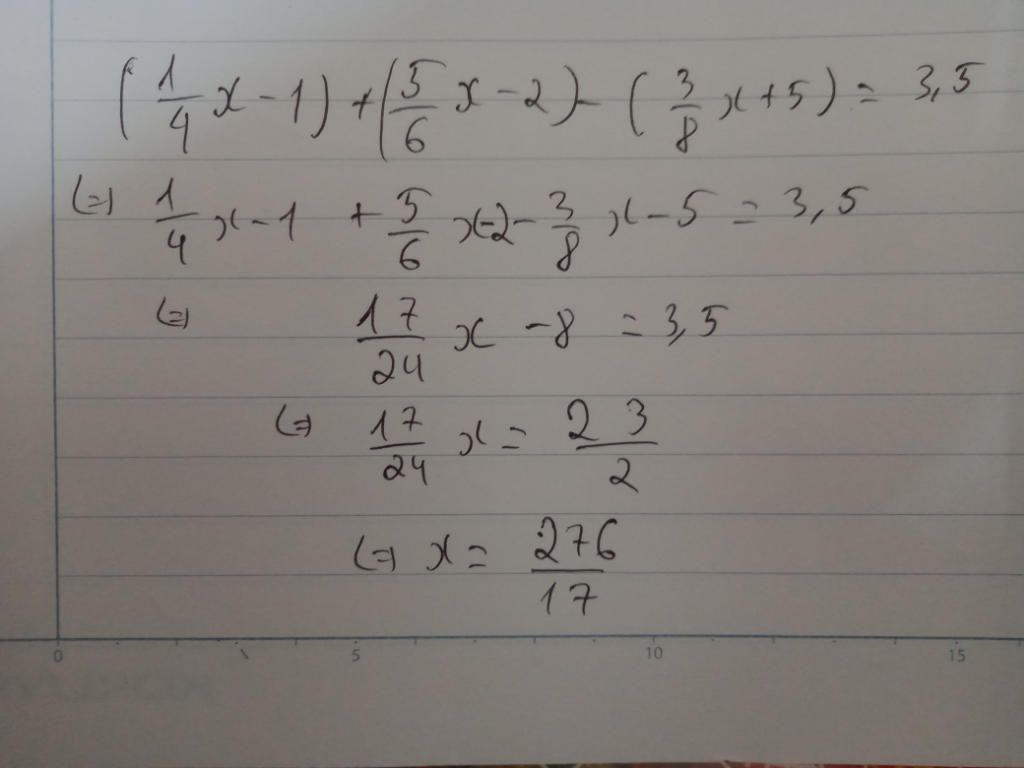 (1/4 x - 1) + (5/6 x - 2) - (3/8 x + 5) = 3,5
(=) 1/4 x - 1 + 5/6 x - 2 - 3/8 x - 5 = 3,5
(=) 17/24 x - 8 = 3,5
(=) 17/24 x = 23/2
(=) x = 276/17
0 5 10 15